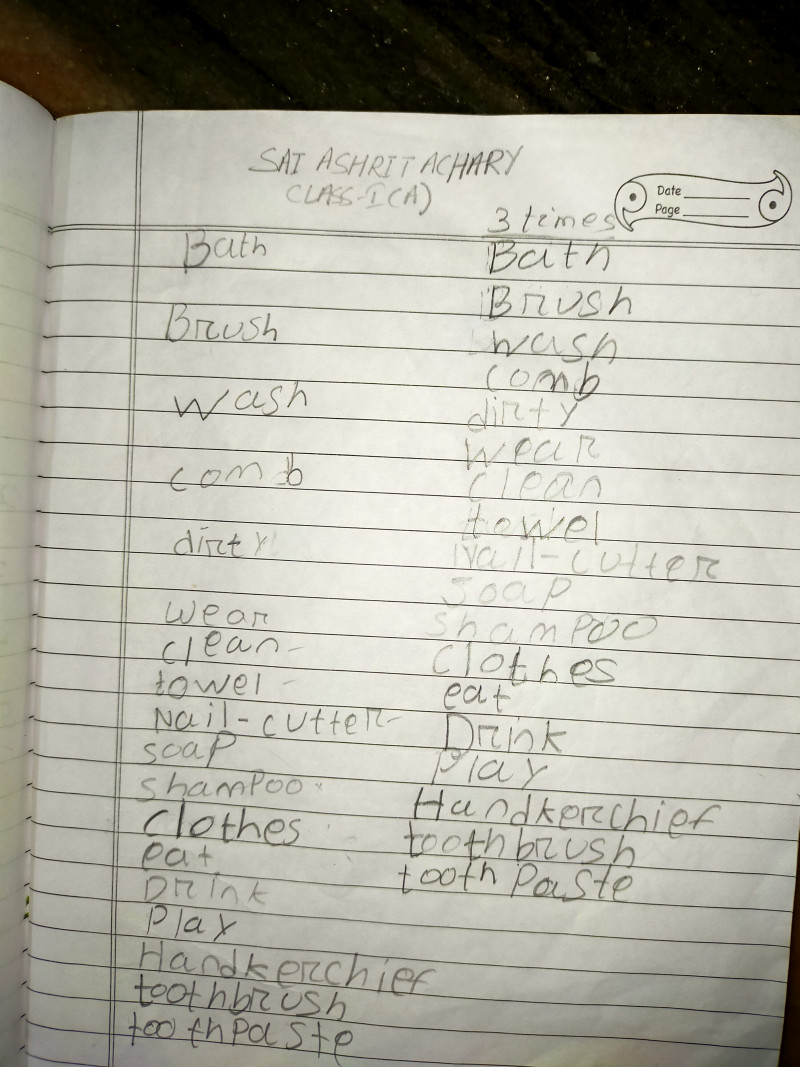 SAI ASHRIT ACHARY
CLASS-I(A)
Date
Page
3 times
Bath
Brush
wash
comb
dirty
wear
clean-
towel -
Nail-cutter-
soap
shampoo
clothes
eat
Drink
Play
Handkerchief
toothbrush
toothpaste
Bath
Brush
wash
comb
dirty
wear
clean
towel
Nail-cutter
soap
shampoo
clothes
eat
Drink
Play
Handkerchief
toothbrush
tooth paste